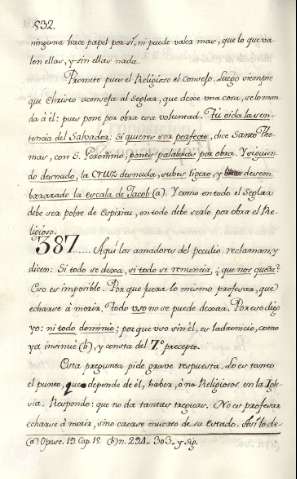 532.
ninguna hace papel por sí, ni puede valer mas, que lo que va
lon ellas, y sin ellas nada.
Promete pues el Religioso el consejo. Luego siempre
que Christo aconseja al Seglar, que dexe una cosa, se lo man
da á él: pues pone por obra esta voluntad. Tú oida la sen-
tencia del Salvador: Si quieres ser perfecto, dice Santo Tho
mas, con S. Geronimo, pones palabras por obra. Y siguien
do desnudo, la CRUZ desnuda, subes ligero, y desem
barazado la escala de Jacob (a). Y como en todo el Seglar
debe ser pobre de espiritu, en todo debe serlo por obra el Re-
ligioso.
387..... Aquí los amadores del peculio reclaman, y
dicen: Si todo se dexa, si todo se renuncia, ¿que nos queda?
Eso es imposible. Por que fuera lo mismo profesar, que
echarse á morir. Todo uso no se puede dexar. Por eso digo
yo: ni todo dominio; porque uso sin él, es ladronicio, como
ya insinué (b), y consta del 7º precepto.
Esta pregunta pide grave respuesta. Lo es tanto
el punto, que depende de él, haber, ó no Religiosos en la Igle
sia. Respondo: que no da tantas treguas. No es profesar
echarse á morir, sino estarse muerto de su estado. Así lo de-
(a) Opusc. 19. Cap. 18. (b) n. 294. - 303. y sig.